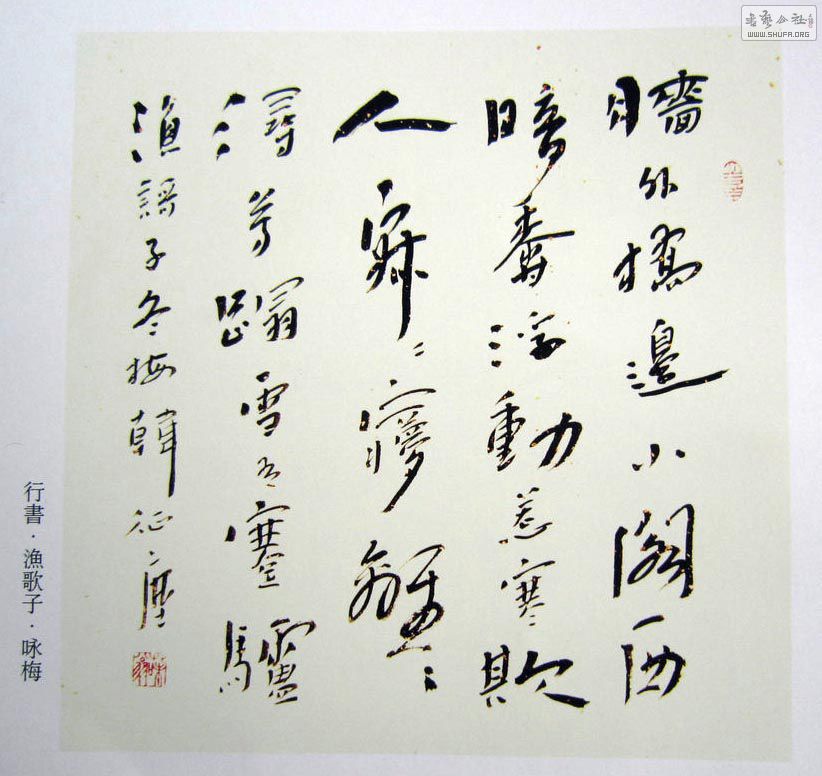 書藝公社
WWW.SHUFA.ORG
牆外橋邊小閣西
暗香浮動惹寒欺
人寂〻㝱離〻
潯芳蹋雪蹇驢
漁謌子冬梅韓征塵
行書·漁歌子·咏梅